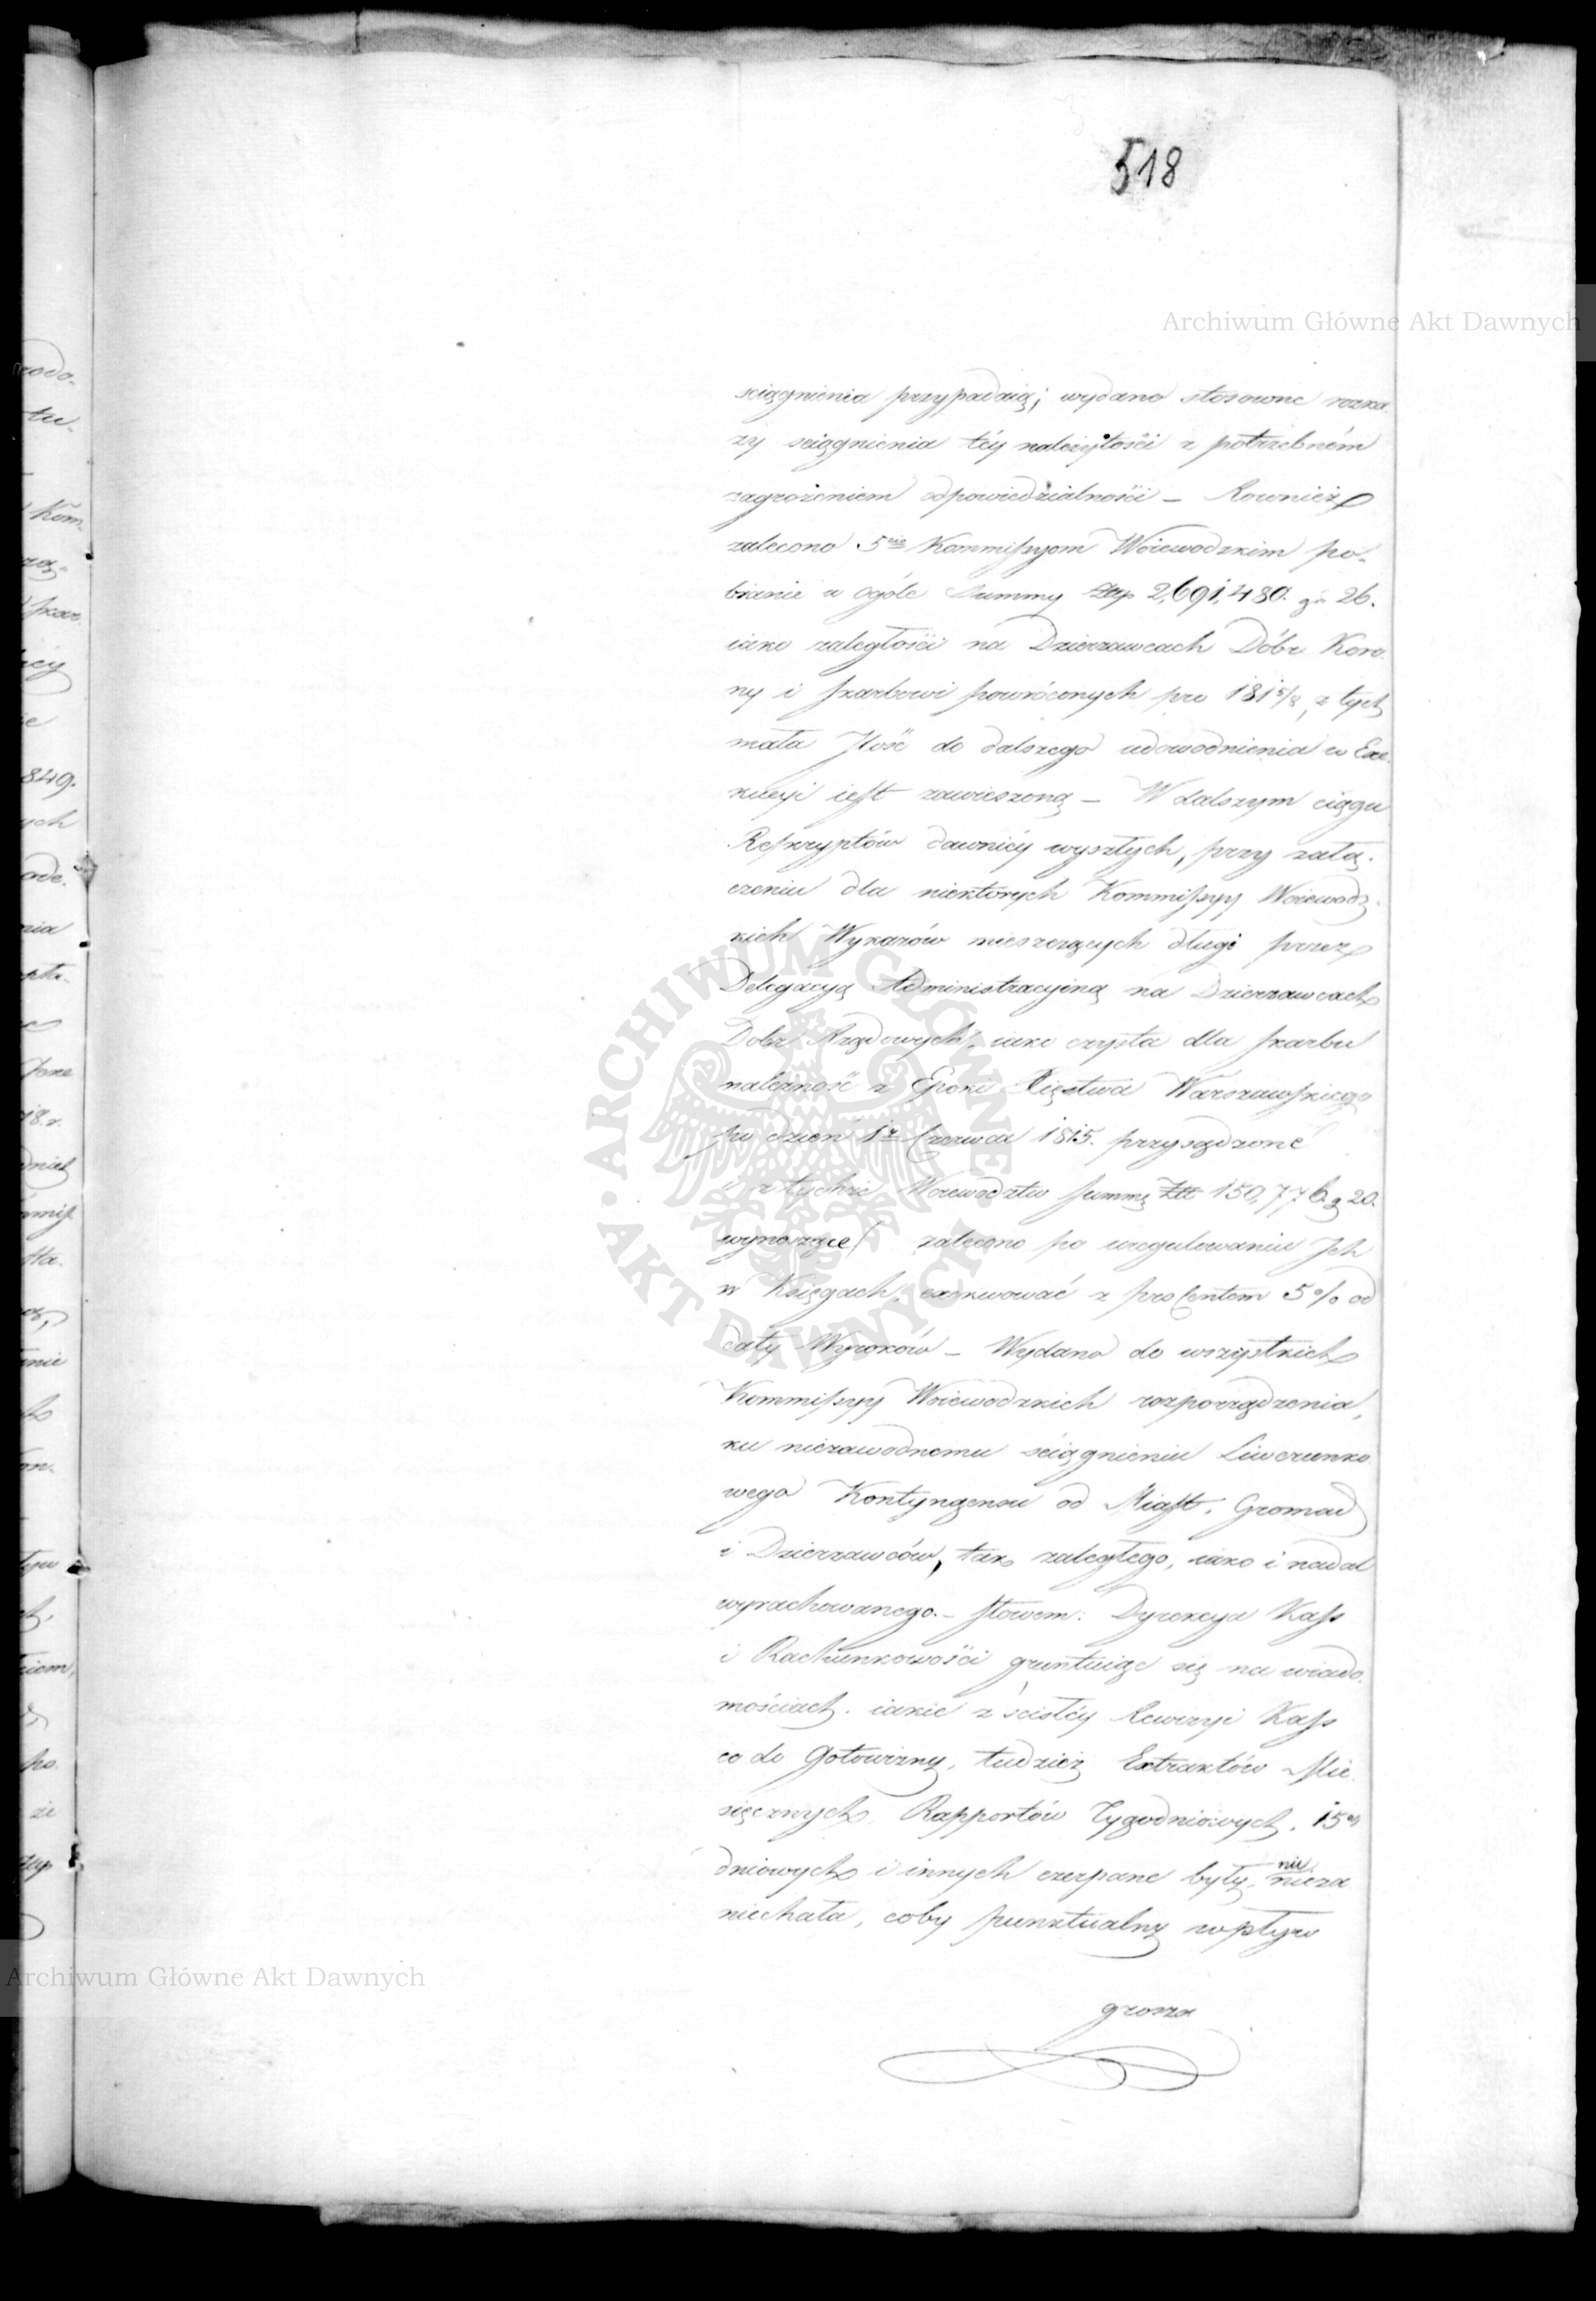 518
Archiwum Główne Akt Dawnych
sciągnienia przypadaią; wydano stosowne rozka
zy sciągnienia téy należytości z potrzebném
zagrożeniem odpowiedzialności – Rownież
zalecono 5ciu Kommissyom Woiewodzkim po-
branie w ogóle Summy Złp 2,691,480. gr 26.
iako zaległości na Dzierzawcach Dóbr Koro
ny i skarbowi powróconych pro 1815/8, z tych
mała Ilość do dalszego udowodnienia w Exe
kucyi iest zawieszoną – W dalszym ciągu
Reskryptów dawniéy wyszłych, przy załą-
czeniu dla niektorych Kommissyy Woiewodz-
kich Wykazów mieszczących długi przez
Delegacyą Administracyiną na Dzierzawcach
Dobr Rządowych, iako czysta dla skarbu
należność z Epoki Xięstwa Warszawskiego
po dzień 1go Czerwca 1815. przysądzone
w tychże Woiewodztw summę Złt 150,776 g 20.
wynoszące/ zalecono po uregulowaniu Ich
w Księgach, exekwować z procentem 5% od
daty Wyroków – Wydano do wszystkich
Kommissyy Woiewodzkich rozporządzenia,
ku niezawodnemu ściągnieniu Liwerunko
wego Kontyngensu od Miast, Gromad
i Dzierzawców, tak zaległego, iako i nadal
wyrachowanego. – słowem: Dyrekcya Kass
i Rachunkowości gruntuiąc się na wiado-
mościach, iakie z ścisłéy Rewizyi Kass
co do Gotowizny, tudzież Extraktów Mie
sięcznych, Rapportów Tygodniowych, 15o
dniowych i innych czerpane były, nie nieza
niechała, coby punktualny wpływ
grosza
ARCHIWUM GŁÓWNE · AKT DAWNYCH ·
Archiwum Główne Akt Dawnych